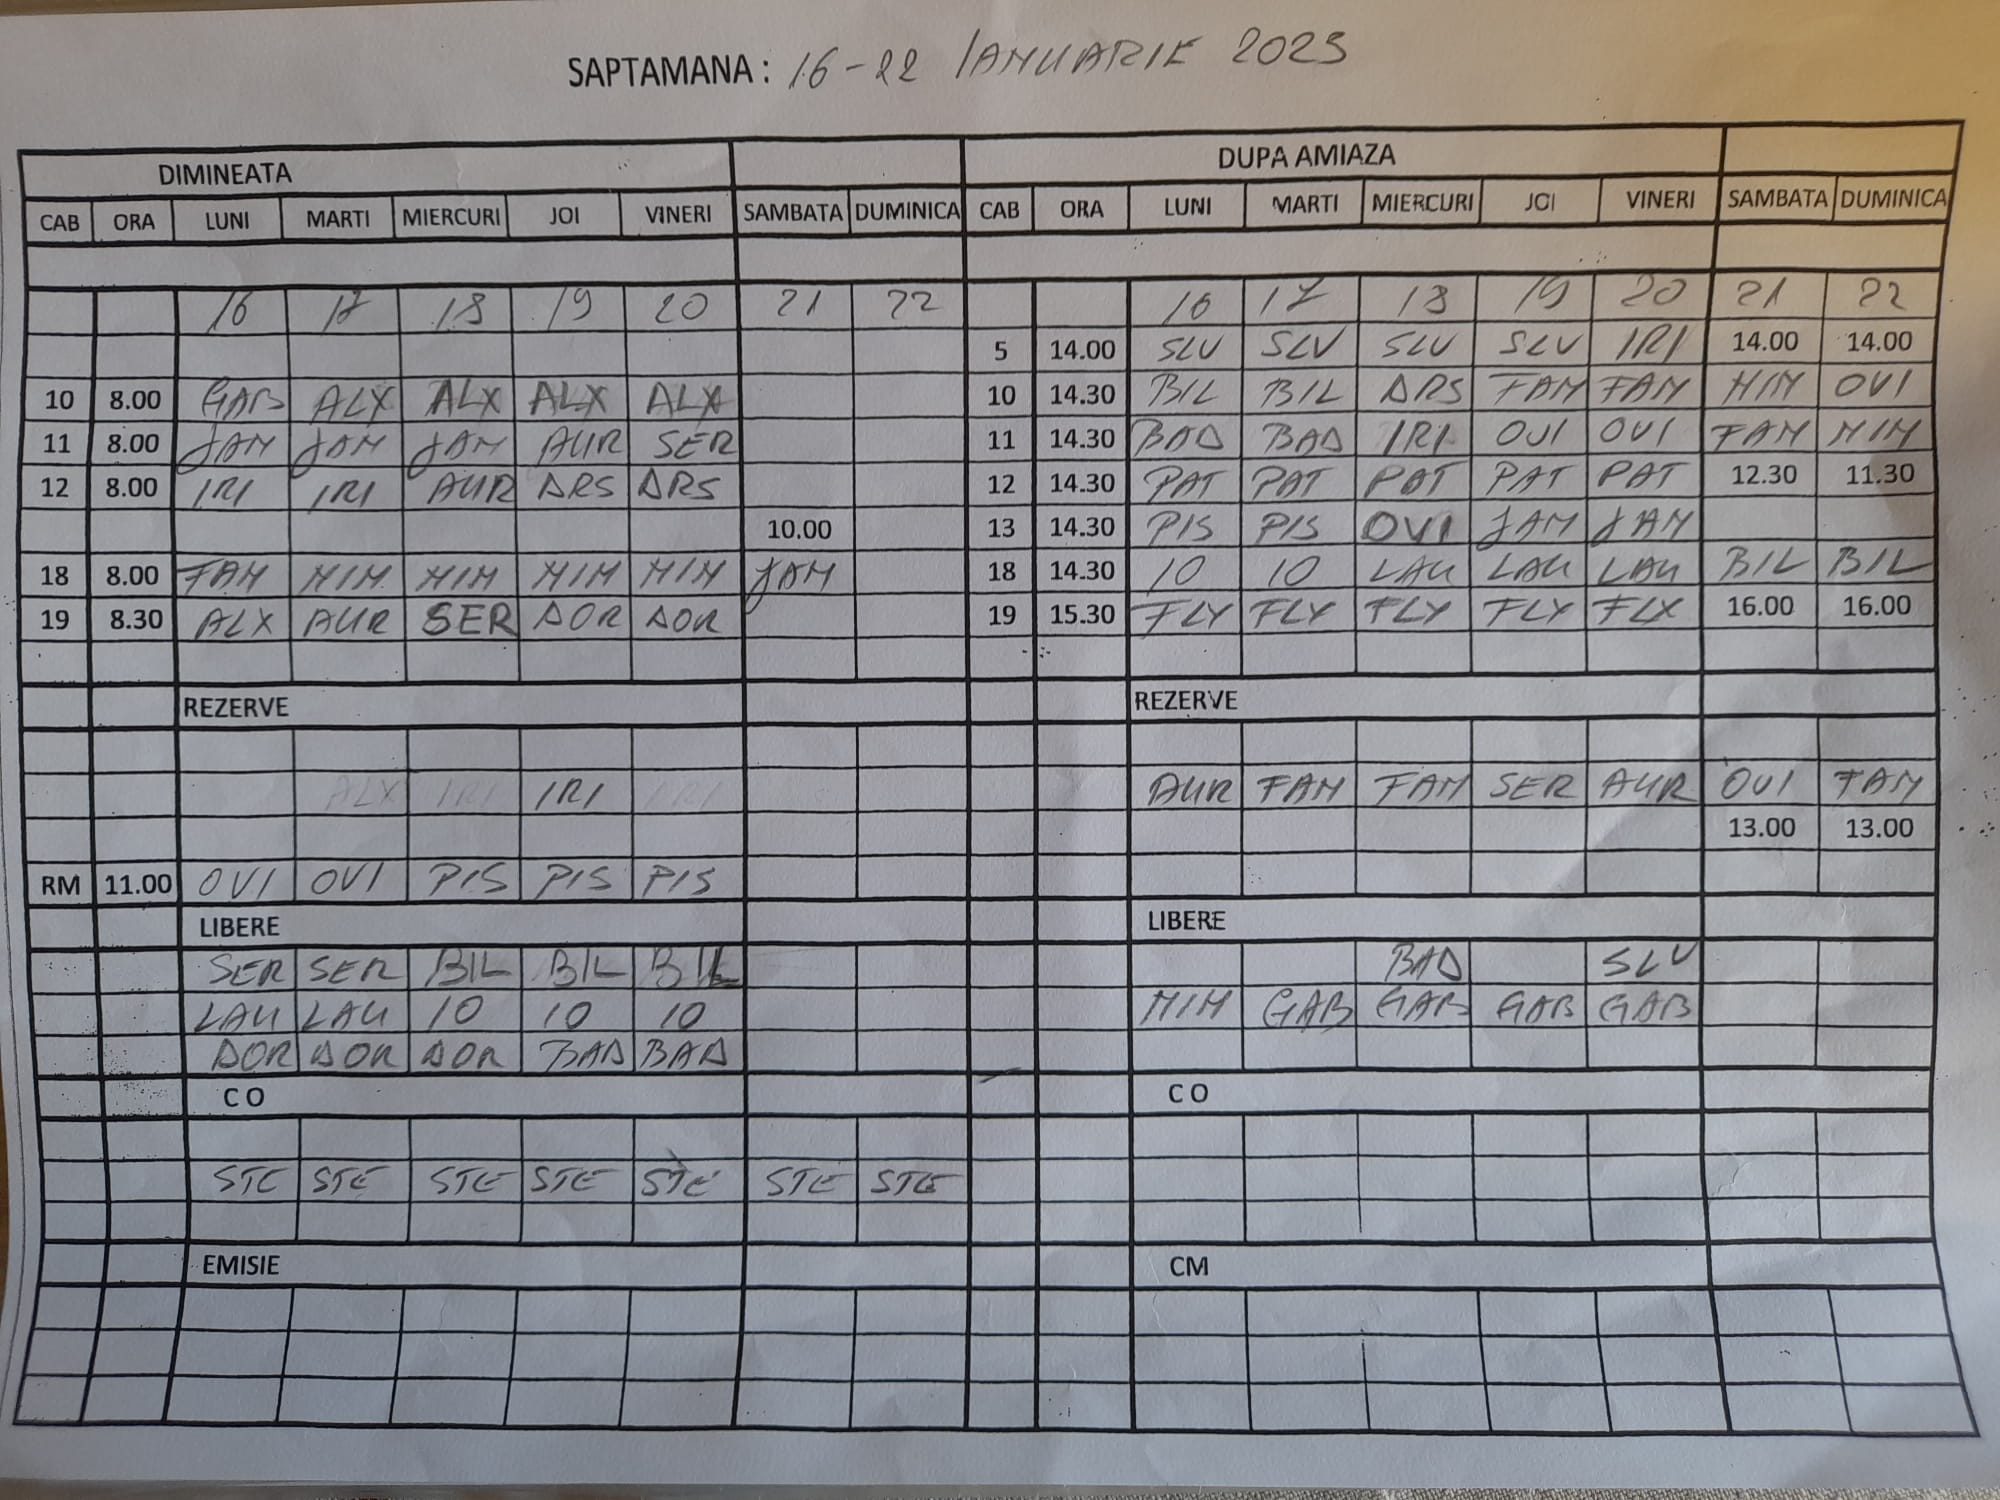 SAPTAMANA : 16-22 IANUARIE 2023
DIMINEATA DUPA AMIAZA
CAB ORA LUNI MARTI MIERCURI JOI VINERI SAMBATA DUMINICA CAB ORA LUNI MARTI MIERCURI JOI VINERI SAMBATA DUMINICA
16 17 18 19 20 21 22 16 17 18 19 20 21 22
5 14.00 SLV SLV SLV SLV IRI 14.00 14.00
10 8.00 GAB ALX ALX ALX ALX 10 14.30 BIL BIL DRS FAM FAM MIM OVI
11 8.00 JAM JAM JAM AUR SER 11 14.30 BAD BAD IRI OVI OVI FAM MIM
12 8.00 IRI IRI AUR DRS DRS 12 14.30 PAT PAT PAT PAT PAT 12.30 11.30
10.00 13 14.30 PIS PIS OVI JAM JAM
18 8.00 FAM MIM MIM MIM MIM JAM 18 14.30 10 10 LAU LAU LAU BIL BIL
19 8.30 ALX AUR SER DOR DOR 19 15.30 FLY FLY FLY FLY FLY 16.00 16.00
REZERVE REZERVE
ALX IRI IRI IRI AUR FAM FAM SER AUR OVI FAM
13.00 13.00
RM 11.00 OVI OVI PIS PIS PIS
LIBERE LIBERE
SER SER BIL BIL BIL BAD SLV
LAU LAU 10 10 10 MIM GAB GAB GAB GAB
DOR DOR DOR BAD BAD
C O C O
STE STE STE STE STE STE STE
EMISIE CM